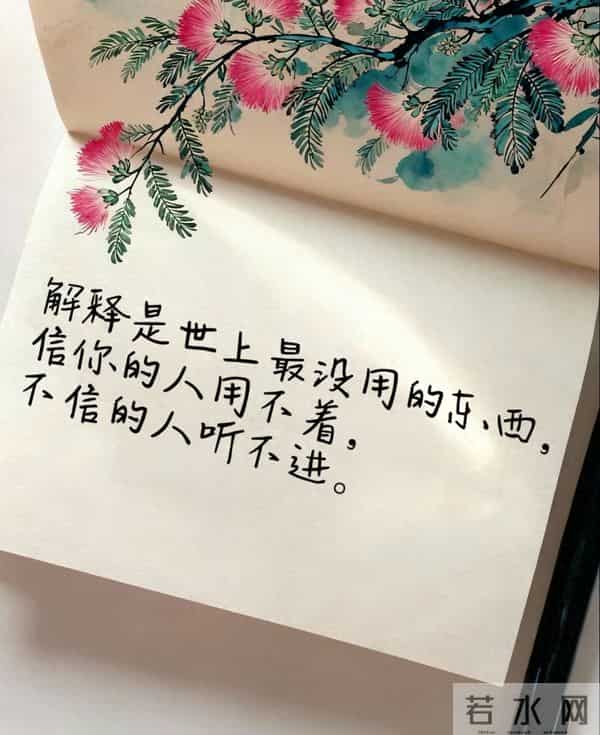 解释是世上最没用的东西,
信你的人用不着,
不信的人听不进。
若水网